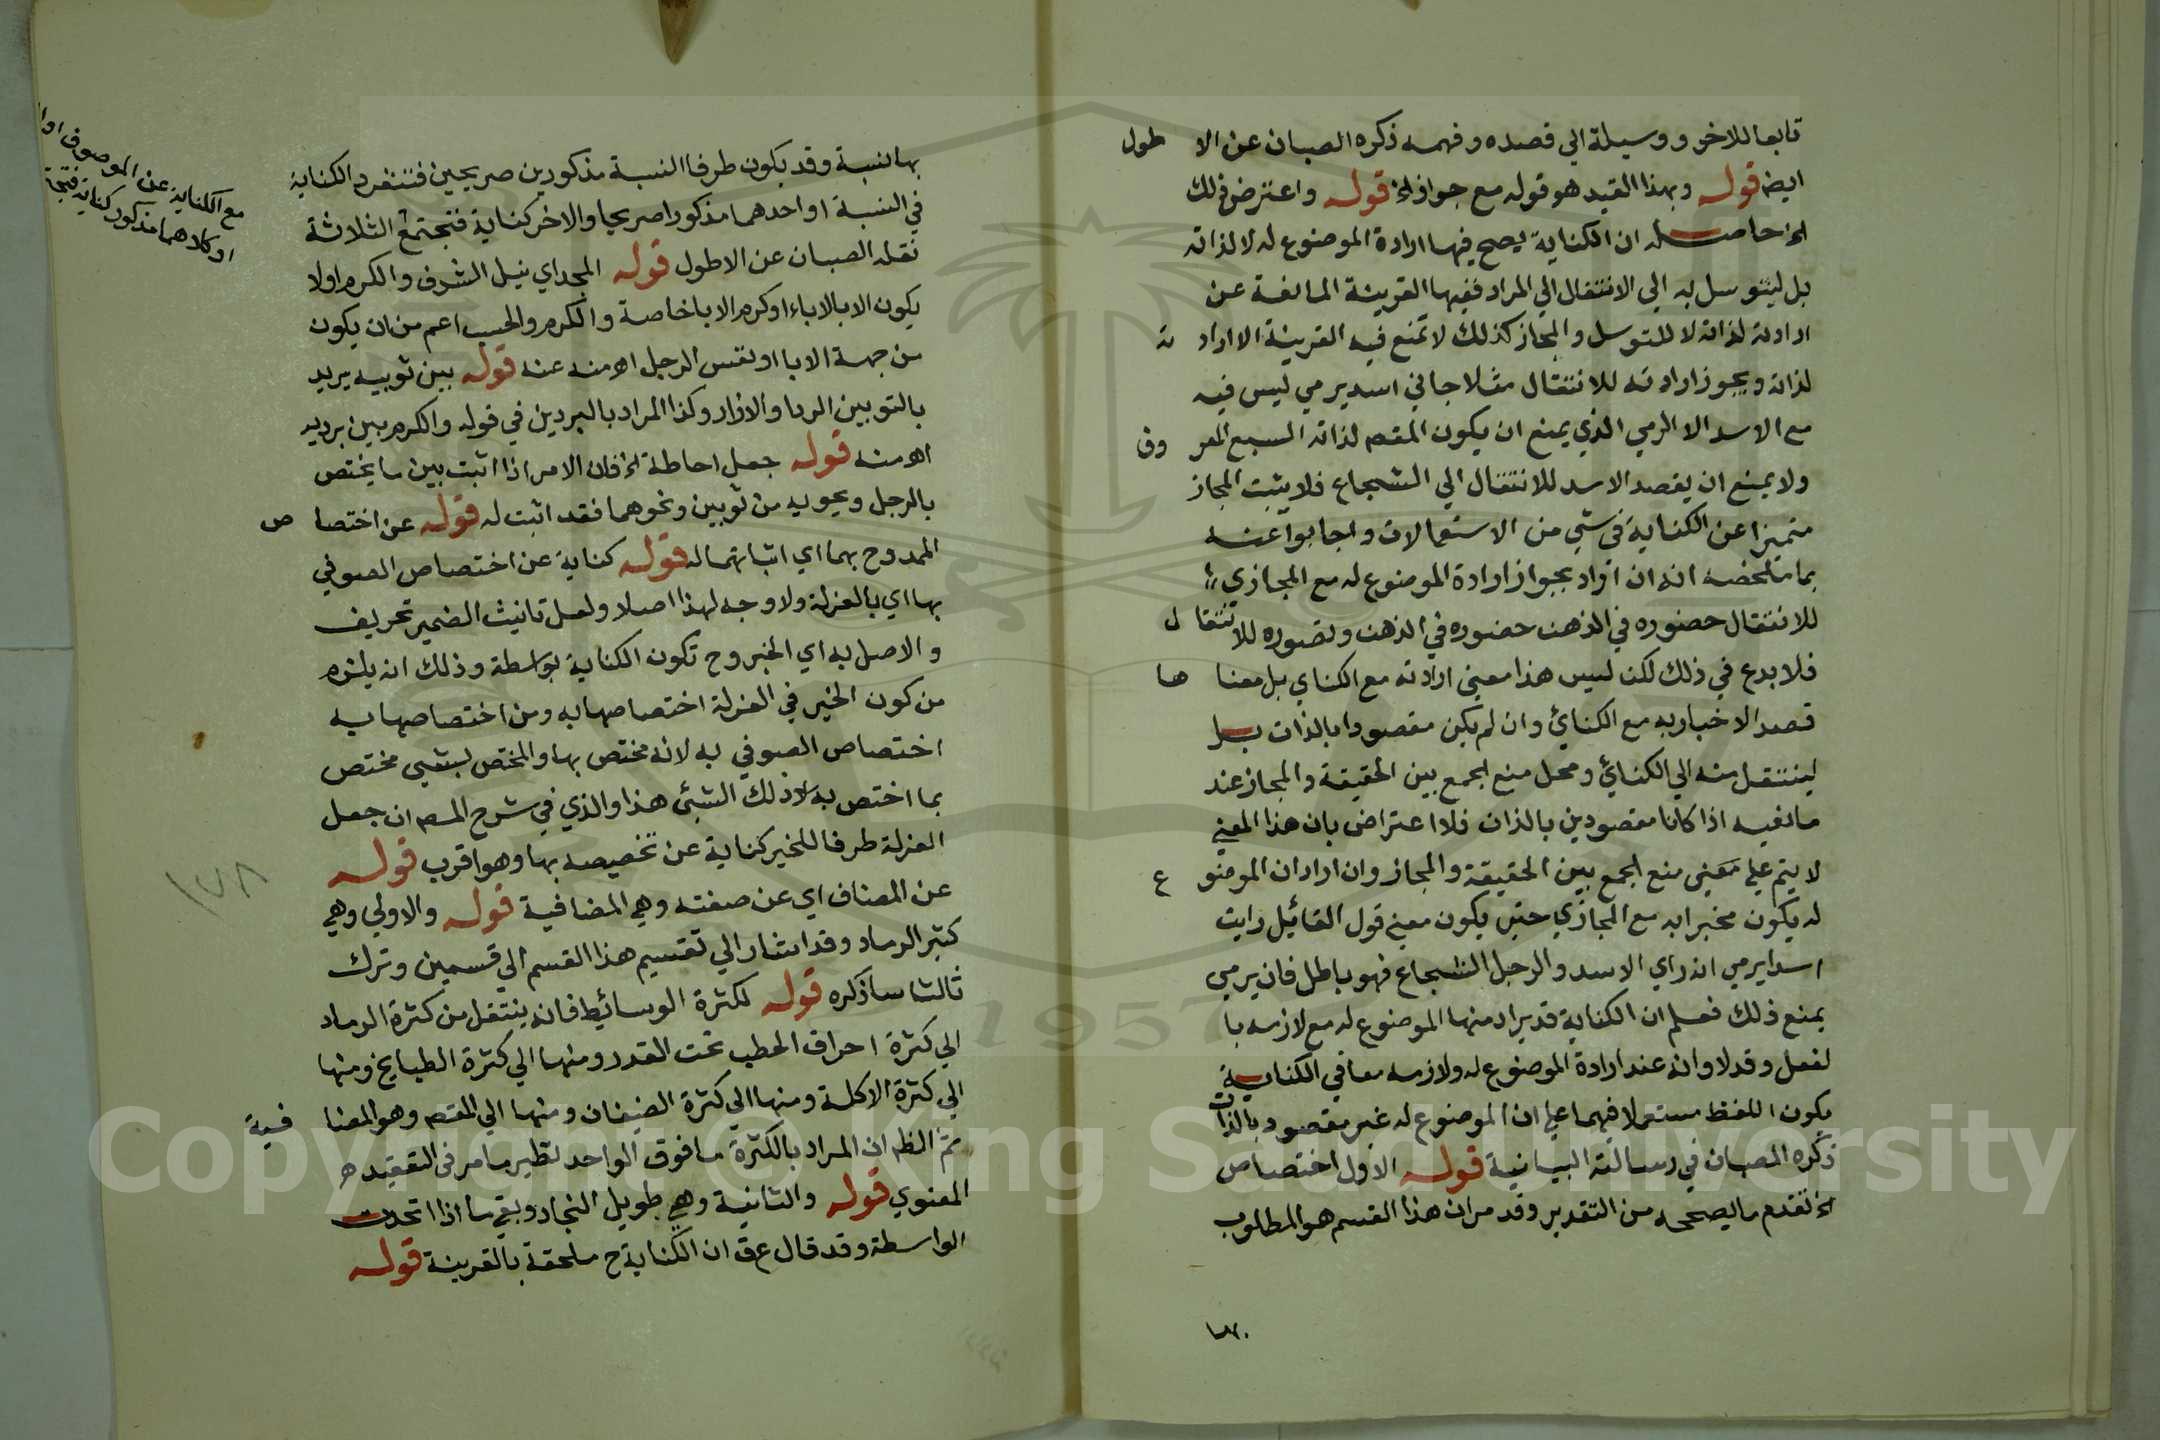 تابعا للاخر ووسيلة الي قصده وفهمه ذكره الصبان عن الاطول
ايضا قوله وبهذا القيد هو قوله مع جواز الخ قوله واعترض ذلك
الخ حاصله ان الكناية يصح فيها ارادة الموضوع له لا لذاته
بل ليتوسل به الي الانتقال الي المراد ففيها القرينة المانعة عن
ارادته لذاته لا للتوسل والمجاز كذلك لا تمنع فيه القرينة الا ارادته
لذاته ويجوز ارادته للانتقال مثلا جاني اسد يرمي ليس فيه
مع الاسد الا الرمي الذي يمنع ان يكون المقصم لذاته السبع المعروف
ولا يمنع ان يقصد الاسد للانتقال الي الشجاع فلا يثبت المجاز
متميزا عن الكناية في شي من الاستعمالات واجابوا عنه
بما ملخصه انه ان اراد بجواز ارادة الموضوع له مع المجازي
للانتقال حضوره في الذهن حضوره في الذهن وتصوره للانتقال
فلا بدع في ذلك لكن ليس هذا معني ارادته مع الكناي بل معناها
قصد الاخبار به مع الكنائي وان لم يكن مقصودا بالذات بل
لينتقل منه الي الكنائي ومحل منع الجمع بين الحقيقة والمجاز عند
مانعيه اذا كانا مقصودين بالذات فلا اعتراض بان هذا المعني
لا يتم علي معني منع الجمع بين الحقيقة والمجاز وان اراد ان الموضوع
له يكون مخبرا به مع المجازي حتي يكون معني قول القائيل رايت
اسدا يرمي انه راي الاسد والرجل الشجاع فهو باطل فان يرمي
يمنع ذلك فعلم ان الكناية قد يراد منها الموضوع له مع لازمه با
لفعل وقد لا وانه عند ارادة الموضوع له ولازمه معا في الكناية
يكون اللفظ مستعملا فيهما علي ان الموضوع له غير مقصود بالذات
ذكره الصبان في رسالته البيانية قوله الاول اختصاص
الخ تقدم ما يصححه من التقدير وقد مر ان هذا القسم هو المطلوب
١٨٠
بها نسبة وقد يكون طرفا النسبة مذكورين صريحين فتنفرد الكناية
في النسبة او احدهما مذكورا صريحا والاخر كناية فتجتمع الثلاثة
مع الكناية عن الموصوف او
او كلاهما مذكور كناية فتجتمع
نقله الصبان عن الاطول قوله المجد اي نيل الشرف والكرم اولا
يكون الا بالاباء او كرم الابا خاصة والكرم والحسب اعم من ان يكون
من جهة الابا او نفس الرجل اه منه عنه قوله بين ثوبيه يريد
بالثوبين الردا والازار وكذا المراد بالبردين في قوله والكرم بين برديه
اه منه قوله جعل احاطة الخ فان الامر اذا اثبت بين ما يختص
بالرجل ويحويه من ثوبين ونحوهما فقد اثبت له قوله عن اختصاص
الممدوح بهما اي اثباتهما له قوله كناية عن اختصاص الصوفي
بها اي بالعزلة ولا وجه لهذا اصلا ولعل تانيث الضمير تحريف
والاصل به اي الخير وح تكون الكناية بواسطة وذلك انه يلزم
من كون الخير في العزلة اختصاصها به ومن اختصاصها به
اختصاص الصوفي به لانه مختص بها والمختص بشي مختص
بما اختص به ذلك الشئ هذا والذي في شرح المصم ان جعل
العزلة طرفا للخير كناية عن تخصيصه بها وهو اقرب قوله
عن المضاف اي عن صفته وهي المضافية قوله والاولي وهي
كثير الرماد وقد اشار الي تقسيم هذا القسم الي قسمين وترك
ثالثا ساذكره قوله لكثرة الوسائيط فانه ينتقل من كثرة الرماد
الي كثرة احراق الحطب تحت القدر ومنها الي كثرة الطبايخ ومنها
الي كثرة الاكلة ومنها الي كثرة الضيفان ومنها الي المقصم وهو المضافية
ثم الظم ان المراد بالكثرة ما فوق الواحد نظير ما مر في التعقيد
المعنوي قوله والثانية وهي طويل النجاد وبقي ما اذا اتحدت
الواسطة وقد قال ع ق ان الكناية ح ملحقة بالقريبة قوله
١٧٨
Copyright © King Saud University
1957